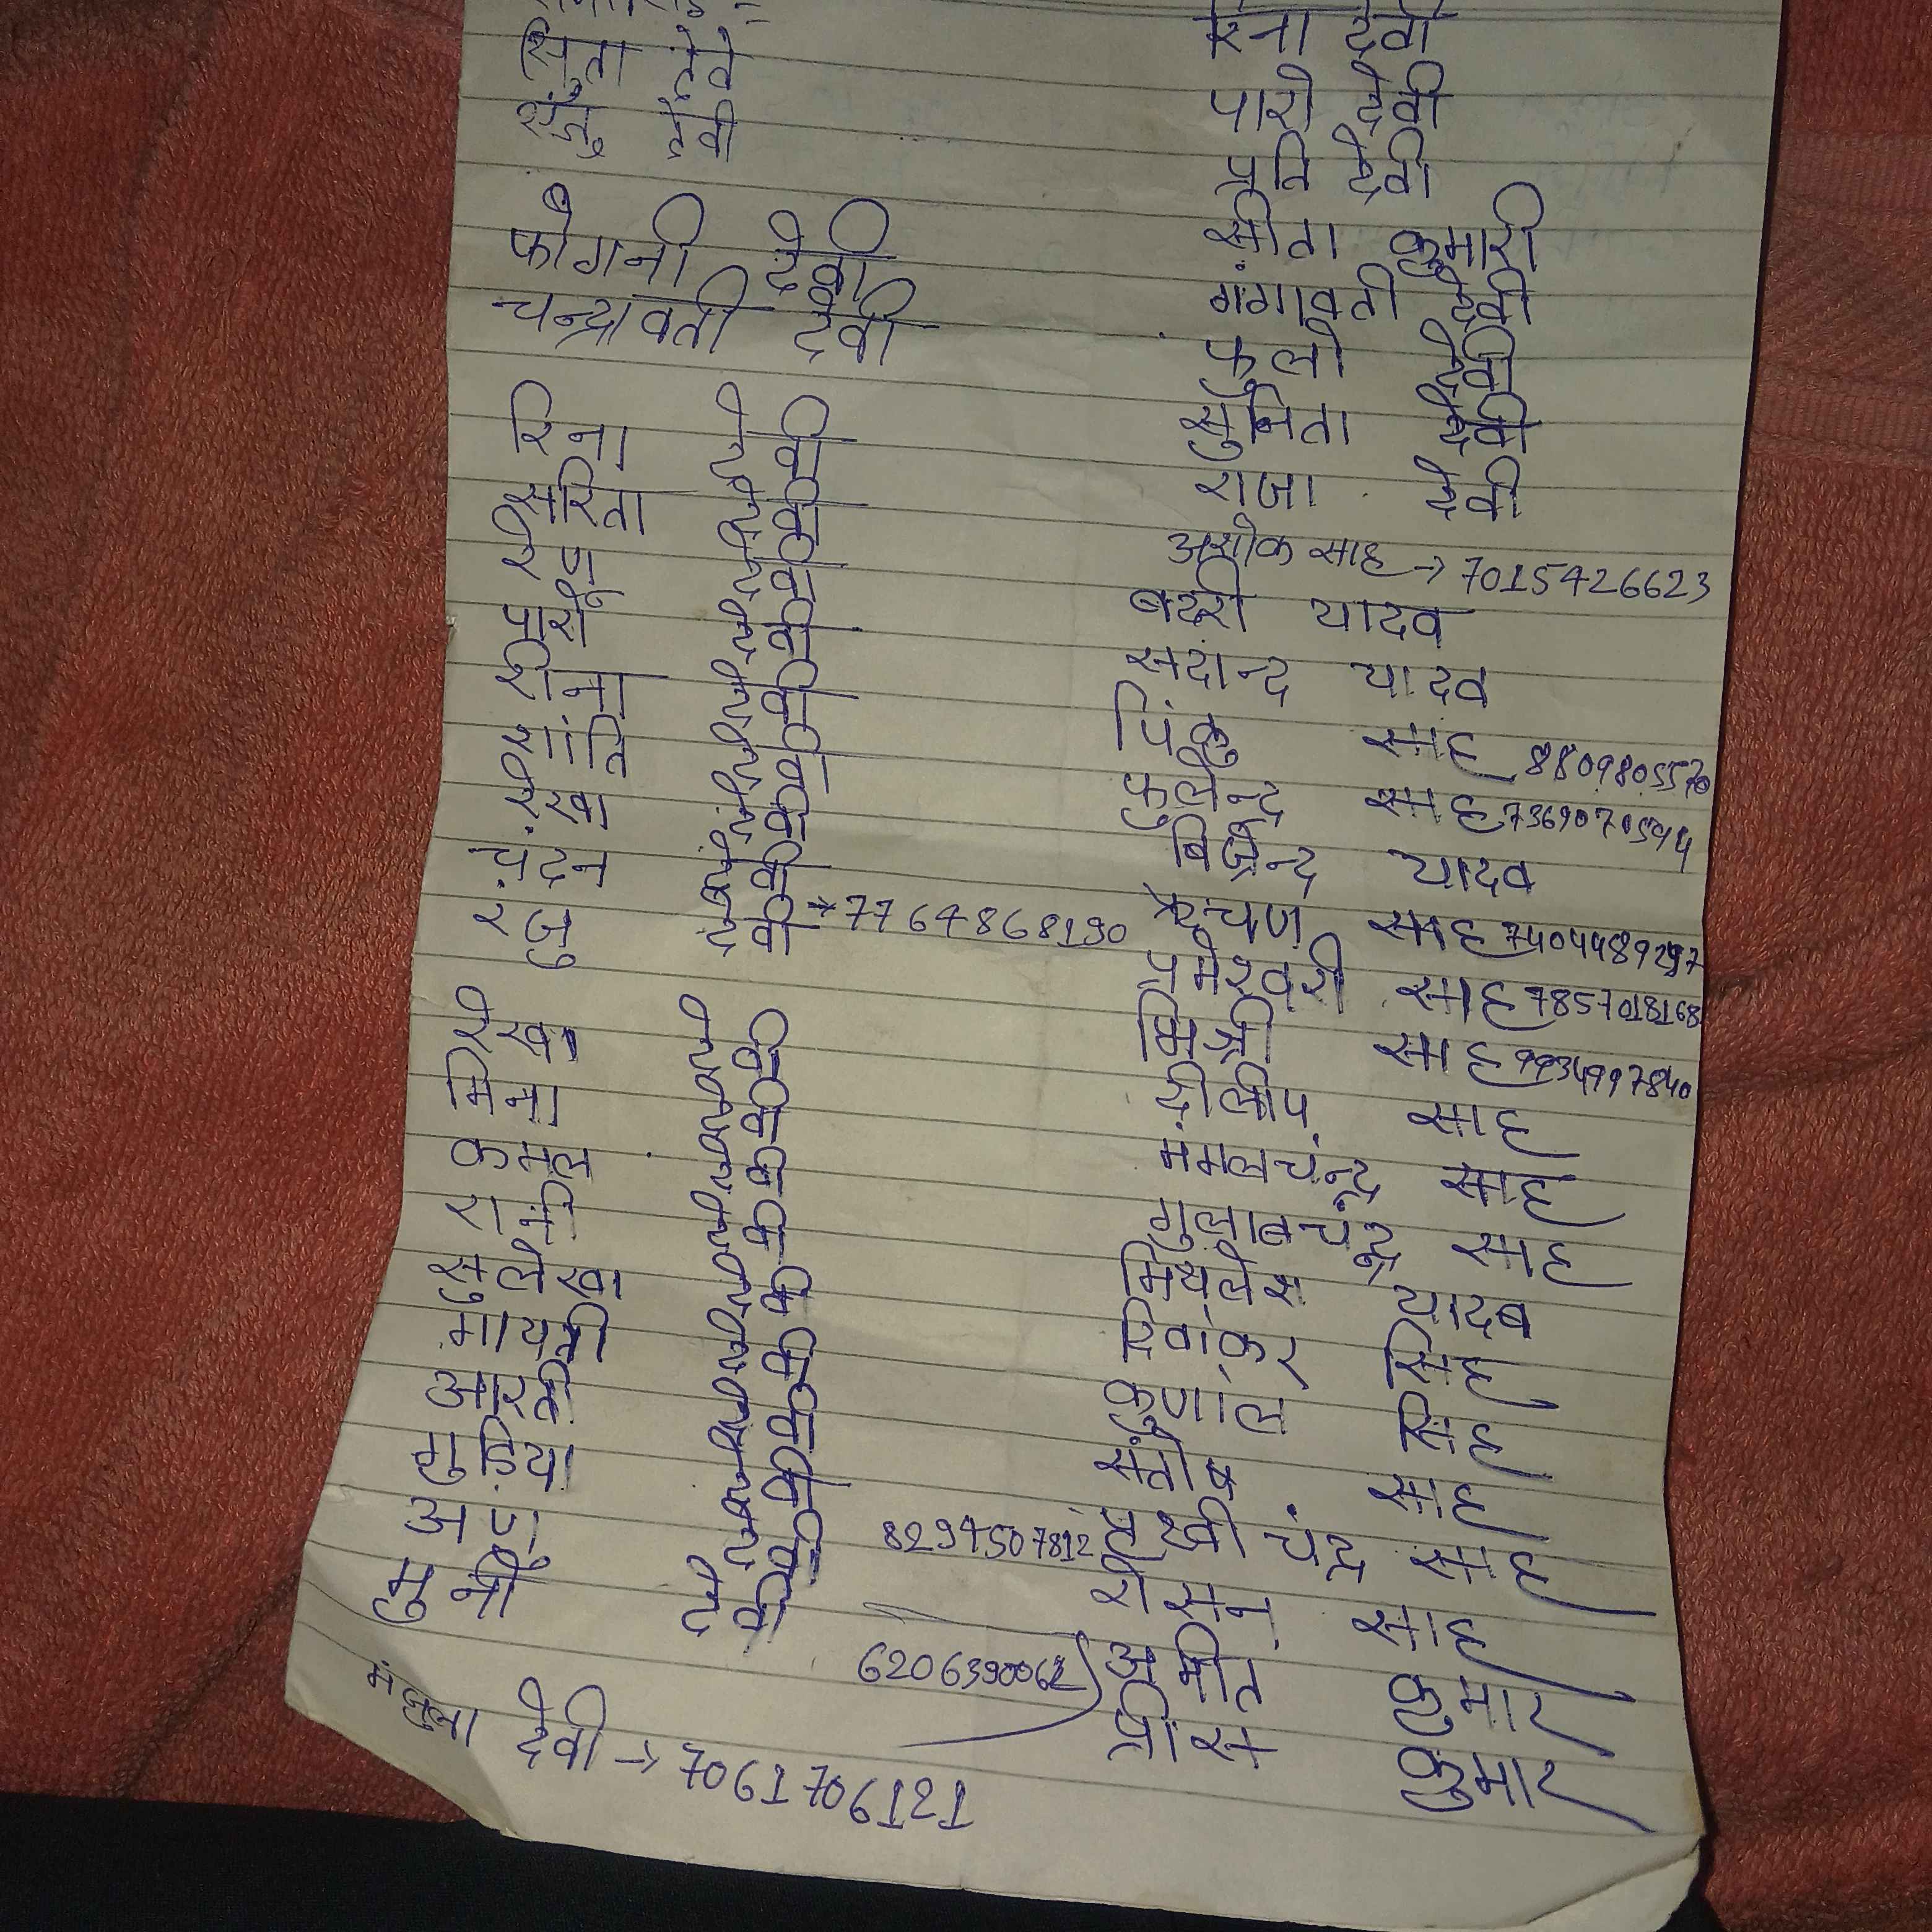 सिता देवे
संजु देवी
फोगनी देवी
चन्द्रावती देवी
रिना देवी
सरिता देवी
रेणु देवी
पारो देवी
रीना देवी
शांति देवी
रेखा देवी
चंदन देवी
रंजु देवी → 7764868190
रेखा देवी
मिना देवी
कमल देवी
रानी देवी
सुलेखा देवी
गायत्री देवी
आरती देवी
गुड़िया देवी
अणु देवी
मुनी देवी
देवी → 7061706121
रिना देवी
पारो देवी
प्रति देवी
सीता कुमारी
गंगावती देवी
फुलो देवी
सुनिता देवी
राजा देवी
अशोक साह → 7015426623
बदरी यादव
सदान्द यादव
पिंकु साह 8809805570
फुलेन्द्र साह
बिजेन्द्र यादव
साह 7404489297
प्रमेश्वरी साह 7857018168
मिश्री साह 9934997840
दीलीप साह
मंगलचंन्द्र साह
गुलाबचंन्द्र साह
मिथलेश यादव
दिवाकर सिंह
कुणाल सिंह
संतोष साह
8294507812 चंद्र साह
रोसन साह
अमीत कुमार
प्रींस कुमार